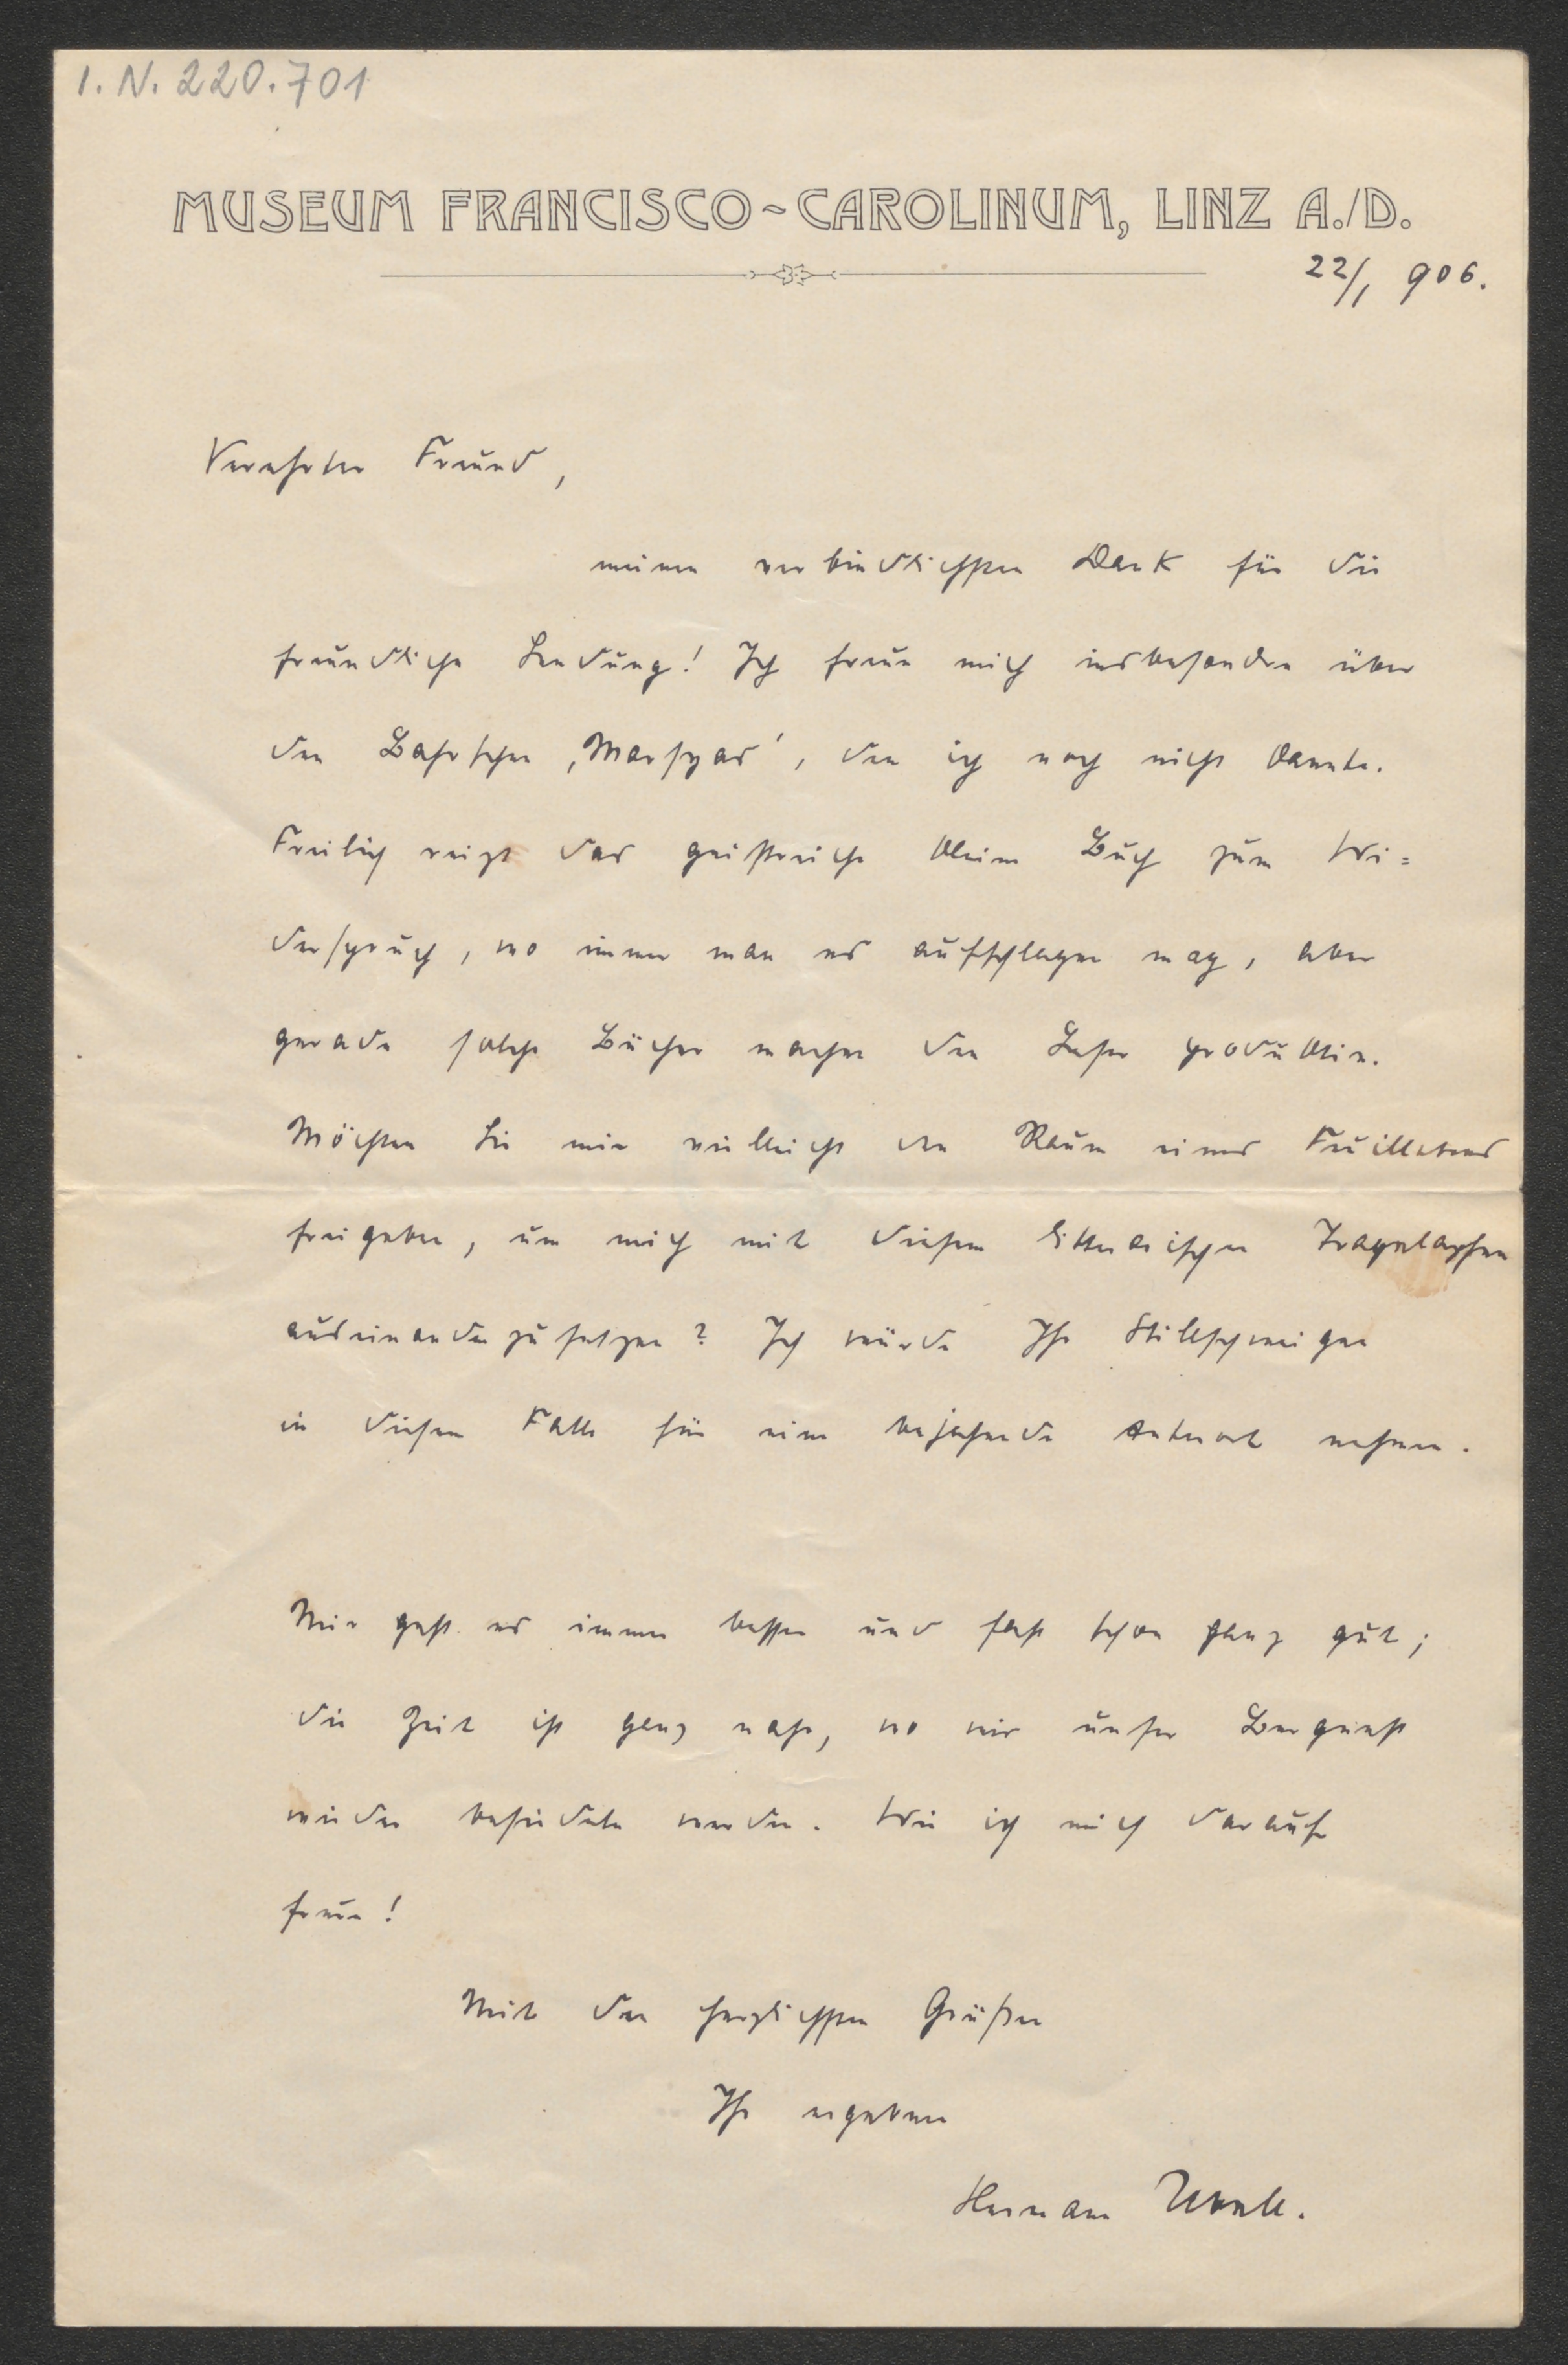 I. N. 220.701
MUSEUM FRANCISCO~CAROLINUM, LINZ A./D.
22/1 906.
Verehrter Freund,
meinen verbindlichsten Dank für die
freundliche Sendung! Ich freue mich insbesondere über
den Bahrschen ‚Marsyas', den ich noch nicht kannte.
Freilich reizt das geistreiche kleine Buch zum Wi=
derspruch, wo immer man es aufschlagen mag, aber
gerade solche Bücher machen den Leser produktiv.
Möchten Sie mir vielleicht den Raum eines Feuilletons
freigeben, um mich mit diesem litterarischen Tragelaphen
auseinanderzusetzen? Ich würde Ihr Stillschweigen
in diesem Falle für eine bejahende Antwort nehmen.
Mir geht es immer besser und fast schon ganz gut;
die Zeit ist ganz nahe, wo wir unser Bergnest
wieder besiedeln werden. Wie ich mich darauf
freue!
Mit den herzlichsten Grüßen
Ihr ergebener
Hermann Ubell.